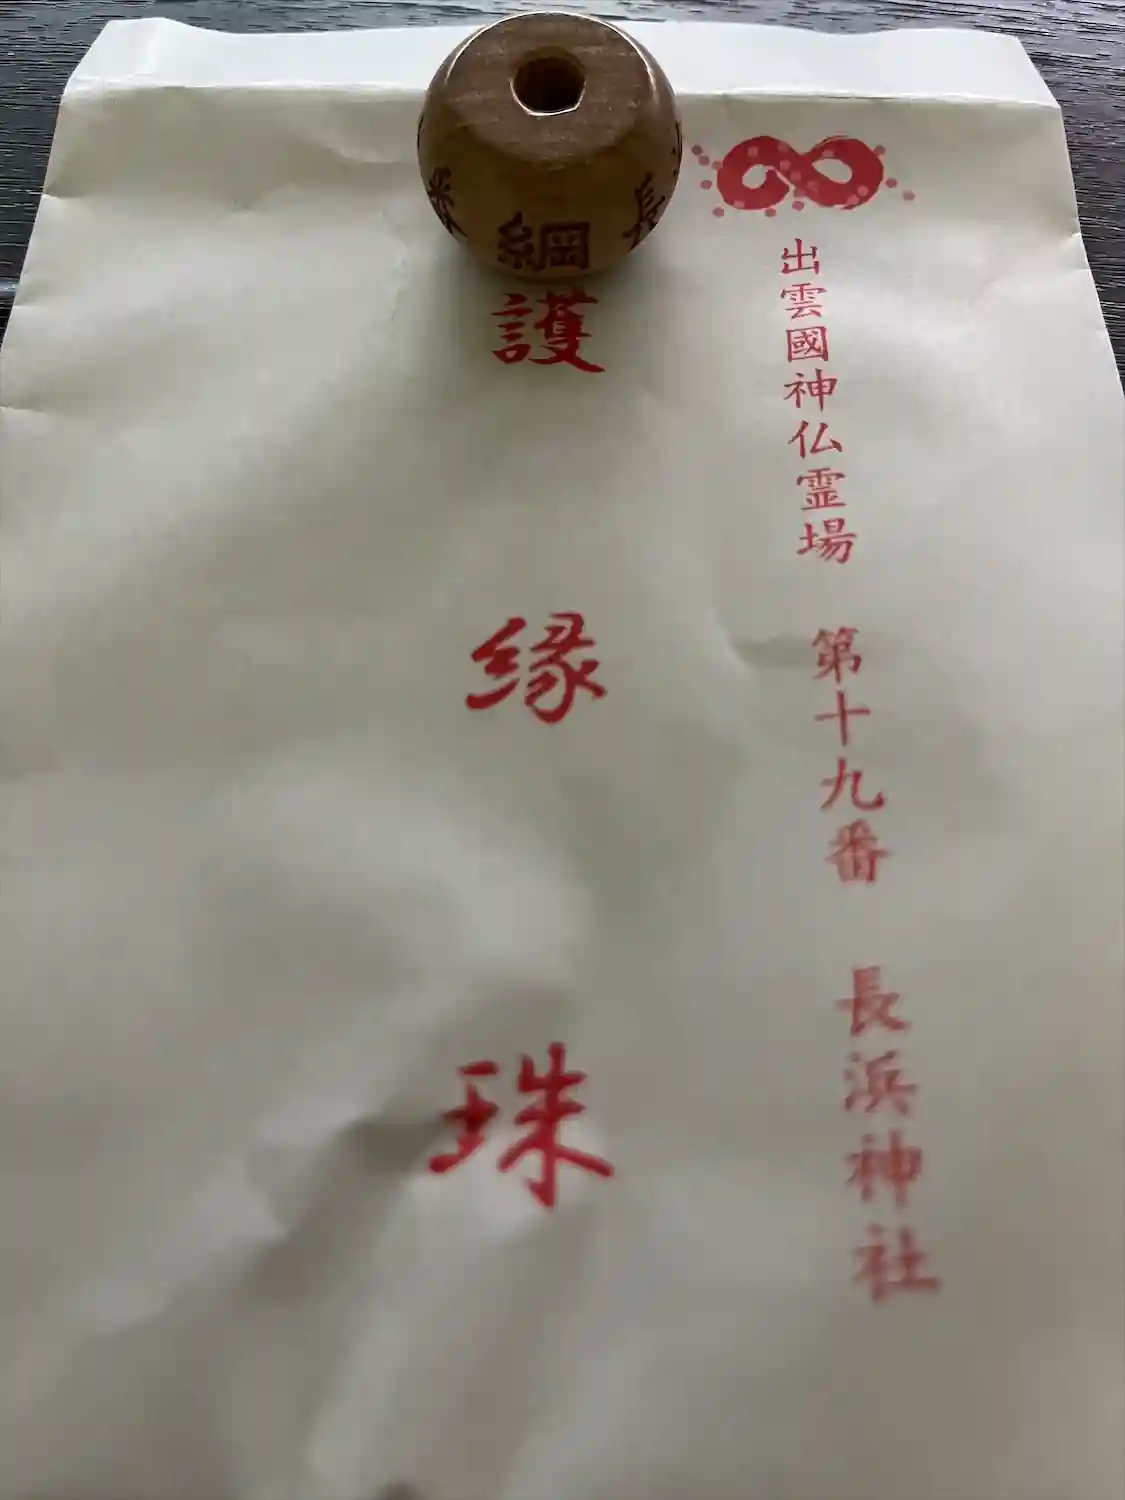 出雲國神仏霊場　第十九番　長浜神社
護縁珠
綱
長